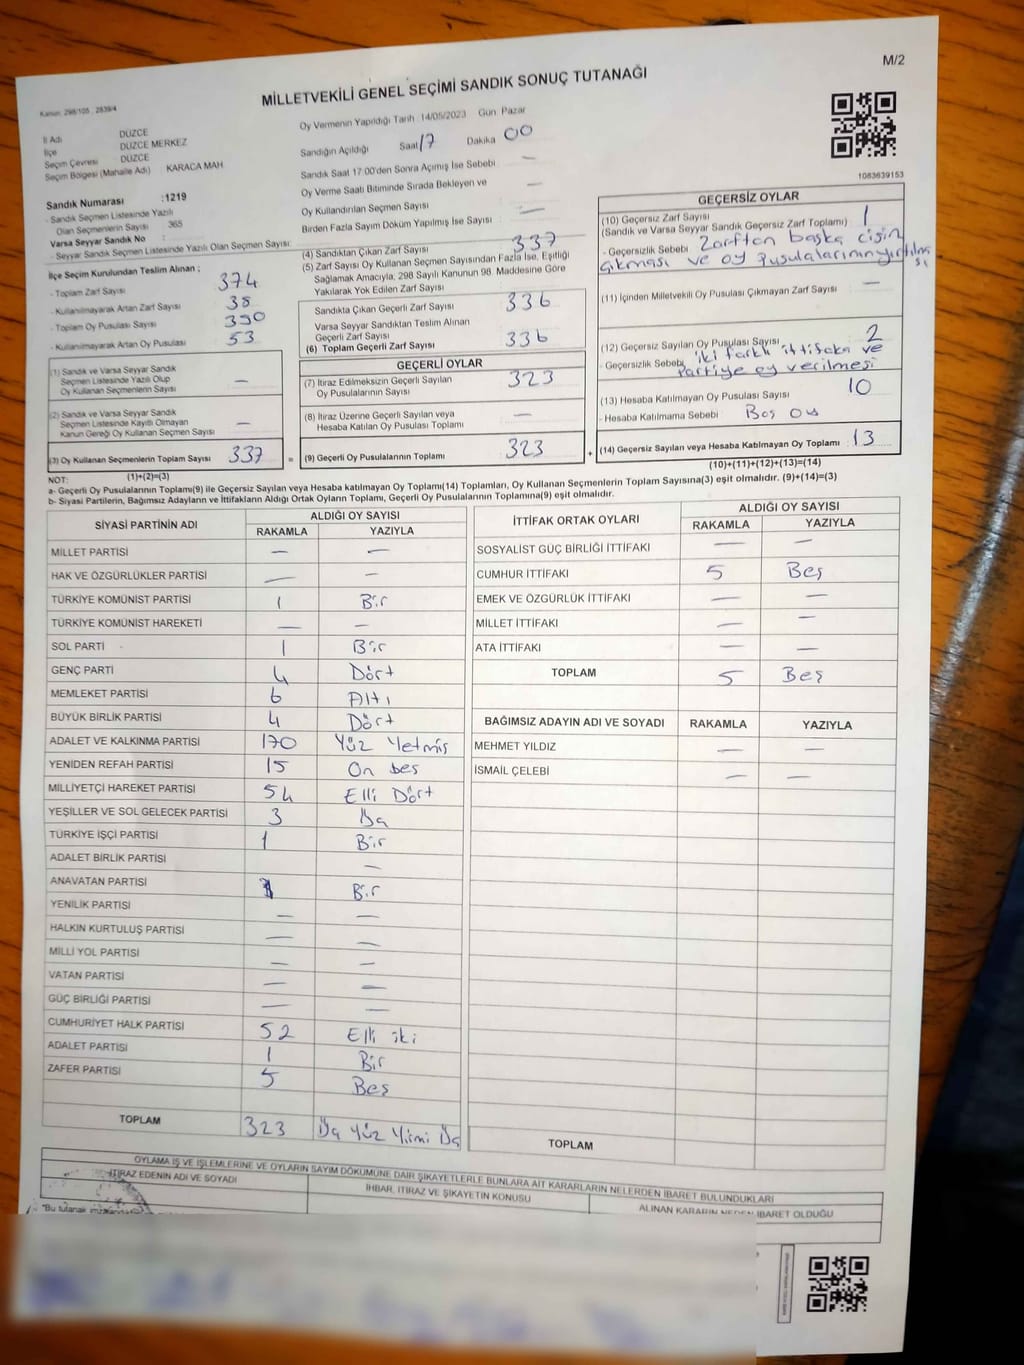 M/2
MİLLETVEKİLİ GENEL SEÇİMİ SANDIK SONUÇ TUTANAĞI
Kanun: 298/105 , 2839/4
İl Adı DÜZCE
İlçe DÜZCE MERKEZ
Seçim Çevresi : DÜZCE
Seçim Bölgesi (Mahalle Adı) : KARACA MAH
Sandık Numarası :1219
- Sandık Seçmen Listesinde Yazılı
Olan Seçmenlerin Sayısı : 365
Varsa Seyyar Sandık No :
- Seyyar Sandık Seçmen Listesinde Yazılı Olan Seçmen Sayısı:
İlçe Seçim Kurulundan Teslim Alınan ;
- Toplam Zarf Sayısı 374
- Kullanılmayarak Artan Zarf Sayısı 38
- Toplam Oy Pusulası Sayısı 390
- Kullanılmayarak Artan Oy Pusulası 53
(1) Sandık ve Varsa Seyyar Sandık
Seçmen Listesinde Yazılı Olup
Oy Kullanan Seçmenlerin Sayısı —
(2) Sandık ve Varsa Seyyar Sandık
Seçmen Listesinde Kayıtlı Olmayan
Kanun Gereği Oy Kullanan Seçmen Sayısı —
(3) Oy Kullanan Seçmenlerin Toplam Sayısı 337
Oy Vermenin Yapıldığı Tarih :14/05/2023 Gün Pazar
Sandığın Açıldığı Saat 17 Dakika 00
Sandık Saat 17:00'den Sonra Açılmış İse Sebebi —
Oy Verme Saati Bitiminde Sırada Bekleyen ve
Oy Kullandırılan Seçmen Sayısı —
Birden Fazla Sayım Döküm Yapılmış İse Sayısı —
(4) Sandıktan Çıkan Zarf Sayısı 337
(5) Zarf Sayısı Oy Kullanan Seçmen Sayısından Fazla İse, Eşitliği
Sağlamak Amacıyla, 298 Sayılı Kanunun 98. Maddesine Göre
Yakılarak Yok Edilen Zarf Sayısı
Sandıkta Çıkan Geçerli Zarf Sayısı 336
Varsa Seyyar Sandıktan Teslim Alınan
Geçerli Zarf Sayısı
(6) Toplam Geçerli Zarf Sayısı 336
GEÇERLİ OYLAR
(7) İtiraz Edilmeksizin Geçerli Sayılan
Oy Pusulalarının Sayısı 323
(8) İtiraz Üzerine Geçerli Sayılan veya
Hesaba Katılan Oy Pusulası Toplamı —
= (9) Geçerli Oy Pusulalarının Toplamı 323 +
1083639153
GEÇERSİZ OYLAR
(10) Geçersiz Zarf Sayısı 1
(Sandık ve Varsa Seyyar Sandık Geçersiz Zarf Toplamı)
- Geçersizlik Sebebi : Zarftan başka cisin
çıkması ve oy pusulalarının yırtılma
sı
(11) İçinden Milletvekili Oy Pusulası Çıkmayan Zarf Sayısı —
(12) Geçersiz Sayılan Oy Pusulası Sayısı 2
- Geçersizlik Sebebi iki farklı ittifaka ve
partiye oy verilmesi
(13) Hesaba Katılmayan Oy Pusulası Sayısı 10
- Hesaba Katılmama Sebebi : Boş oy
(14) Geçersiz Sayılan veya Hesaba Katılmayan Oy Toplamı : 13
(10)+(11)+(12)+(13)=(14)
NOT: (1)+(2)=(3)
a- Geçerli Oy Pusulalarının Toplamı(9) ile Geçersiz Sayılan veya Hesaba katılmayan Oy Toplamı(14) Toplamları, Oy Kullanan Seçmenlerin Toplam Sayısına(3) eşit olmalıdır. (9)+(14)=(3)
b- Siyasi Partilerin, Bağımsız Adayların ve İttifakların Aldığı Ortak Oyların Toplamı, Geçerli Oy Pusulalarının Toplamına(9) eşit olmalıdır.
SİYASİ PARTİNİN ADI ALDIĞI OY SAYISI
RAKAMLA YAZIYLA
MİLLET PARTİSİ — —
HAK VE ÖZGÜRLÜKLER PARTİSİ — —
TÜRKİYE KOMÜNİST PARTİSİ 1 Bir
TÜRKİYE KOMÜNİST HAREKETİ — —
SOL PARTİ 1 Bir
GENÇ PARTİ 4 Dört
MEMLEKET PARTİSİ 6 Altı
BÜYÜK BİRLİK PARTİSİ 4 Dört
ADALET VE KALKINMA PARTİSİ 170 Yüz Yetmiş
YENİDEN REFAH PARTİSİ 15 On beş
MİLLİYETÇİ HAREKET PARTİSİ 54 Elli Dört
YEŞİLLER VE SOL GELECEK PARTİSİ 3 Üç
TÜRKİYE İŞÇİ PARTİSİ 1 Bir
ADALET BİRLİK PARTİSİ —
ANAVATAN PARTİSİ 1 Bir
YENİLİK PARTİSİ — —
HALKIN KURTULUŞ PARTİSİ — —
MİLLİ YOL PARTİSİ — —
VATAN PARTİSİ — —
GÜÇ BİRLİĞİ PARTİSİ — —
CUMHURİYET HALK PARTİSİ 52 Elli iki
ADALET PARTİSİ 1 Bir
ZAFER PARTİSİ 5 Beş
TOPLAM 323 Üç Yüz Yirmi Üç
İTTİFAK ORTAK OYLARI ALDIĞI OY SAYISI
RAKAMLA YAZIYLA
SOSYALİST GÜÇ BİRLİĞİ İTTİFAKI — —
CUMHUR İTTİFAKI 5 Beş
EMEK VE ÖZGÜRLÜK İTTİFAKI — —
MİLLET İTTİFAKI — —
ATA İTTİFAKI — —
TOPLAM 5 Beş
BAĞIMSIZ ADAYIN ADI VE SOYADI RAKAMLA YAZIYLA
MEHMET YILDIZ — —
İSMAİL ÇELEBİ — —
TOPLAM
OYLAMA İŞ VE İŞLEMLERİNE VE OYLARIN SAYIM DÖKÜMÜNE DAİR ŞİKAYETLERLE BUNLARA AİT KARARLARIN NELERDEN İBARET BULUNDUKLARI
İTİRAZ EDENİN ADI VE SOYADI
İHBAR, İTİRAZ VE ŞİKAYETİN KONUSU
ALINAN KARARIN NEDEN İBARET OLDUĞU
"Bu tutanak